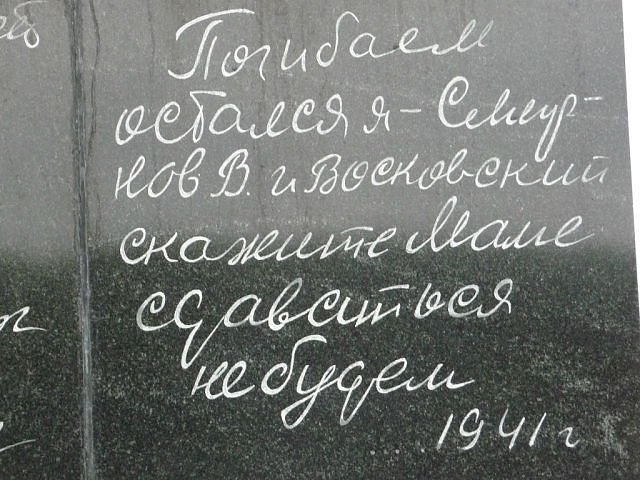 Погибаем
остался я - Смир-
нов В. и Восковский
скажите Маме
сдаваться
не будем
1941 г